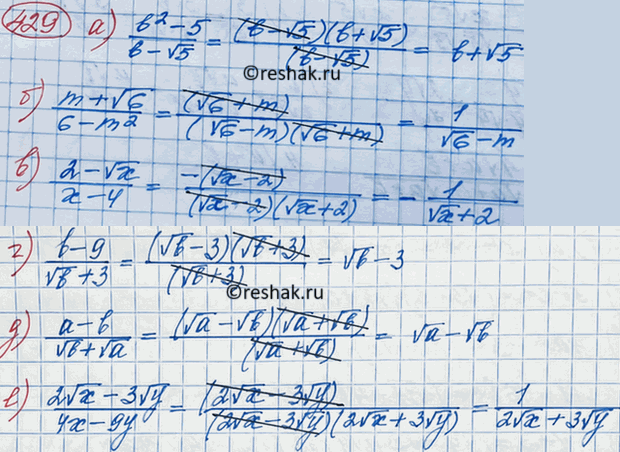 429 а) (b² - 5)/(b - √5) = ((b - √5)(b + √5))/(b - √5) = b + √5
©reshak.ru
б) (m + √6)/(6 - m²) = (√6 + m)/((√6 - m)(√6 + m)) = 1/(√6 - m)
в) (2 - √x)/(x - 4) = -(√x - 2)/((√x - 2)(√x + 2)) = - 1/(√x + 2)
г) (b - 9)/(√b + 3) = ((√b - 3)(√b + 3))/(√b + 3) = √b - 3
©reshak.ru
д) (a - b)/(√b + √a) = ((√a - √b)(√a + √b))/(√a + √b) = √a - √b
е) (2√x - 3√y)/(4x - 9y) = (2√x - 3√y)/((2√x - 3√y)(2√x + 3√y)) = 1/(2√x + 3√y)